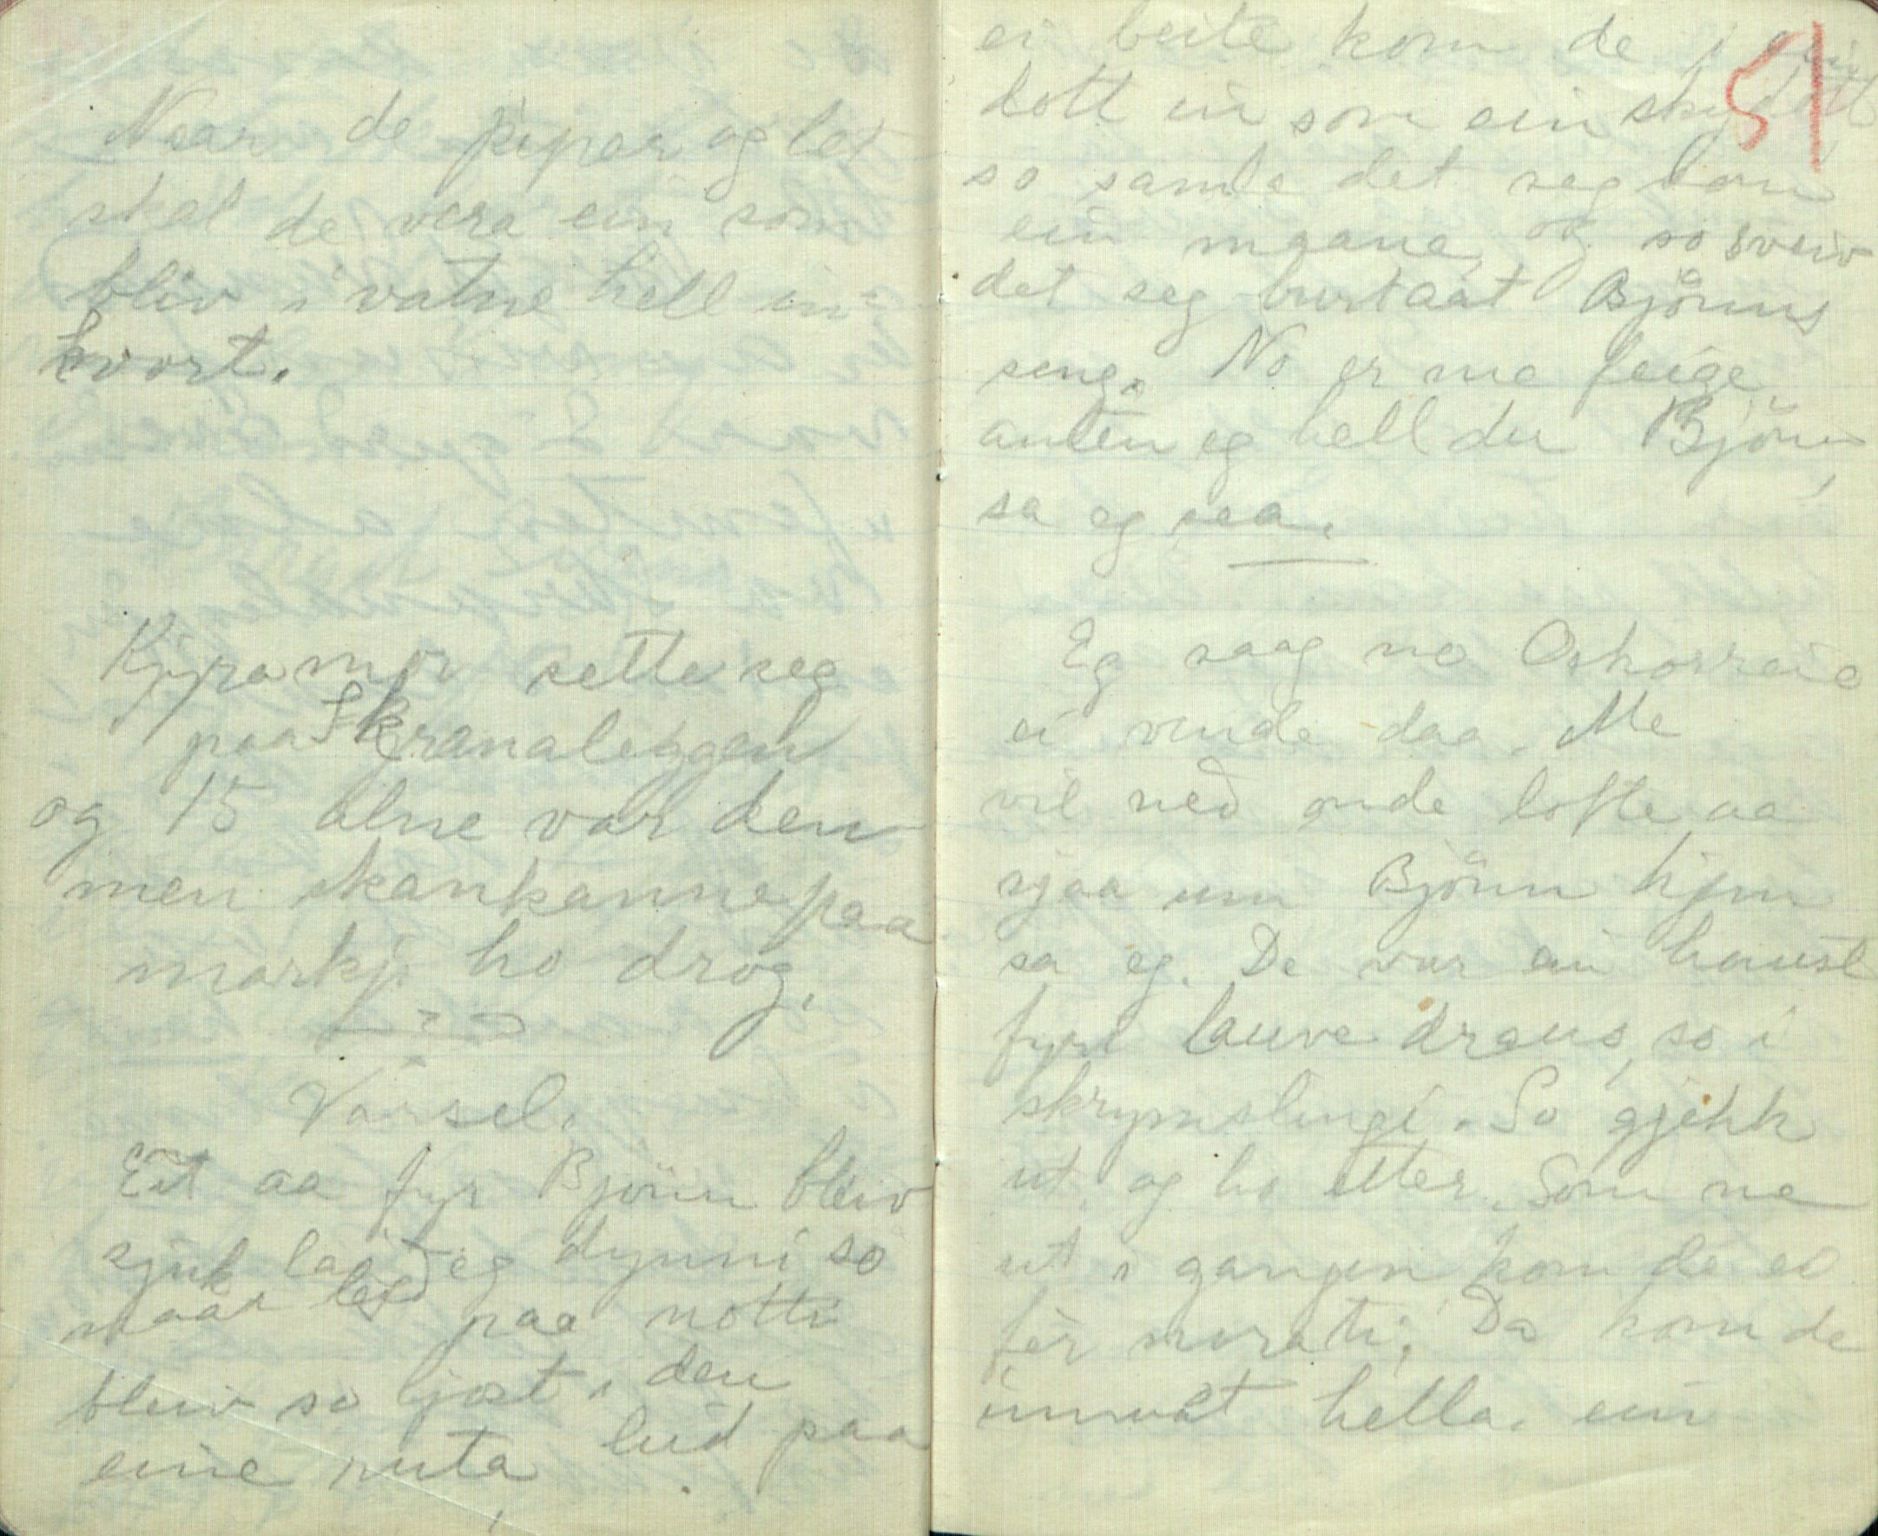 Naar de pipar og let
skal de vera ein som
bliv i vatne hell in-
kvort.
Kjyramor sette seg
paa Skranaleggen
og 15 alne var den
men skankanne paa
markji ho drog.
Varsel.
Eit aa fyr Björnn bleiv
sjuk laag eg dynni so
naar leid paa notti
bleiv so ljost i den
eine ruta, leid paa
51
ei beite kom de i
dott in som ein skydott
so samla det seg som
ein maane, og so sveiv
det seg burtaat Björnns
seng. No er me feige
anten eg hell du Björnn,
sa eg
Eg saag no Oskorreie
ei vende daa. Me
vil ned onde lofte aa
sjaa um Björnn kjem
sa eg. De var ein haust
fyri lauve draus, so i
skrymslingi. So gjekk
ut og ho etter. Som me
ut i gangen kom de
Da kom de
hella. ein